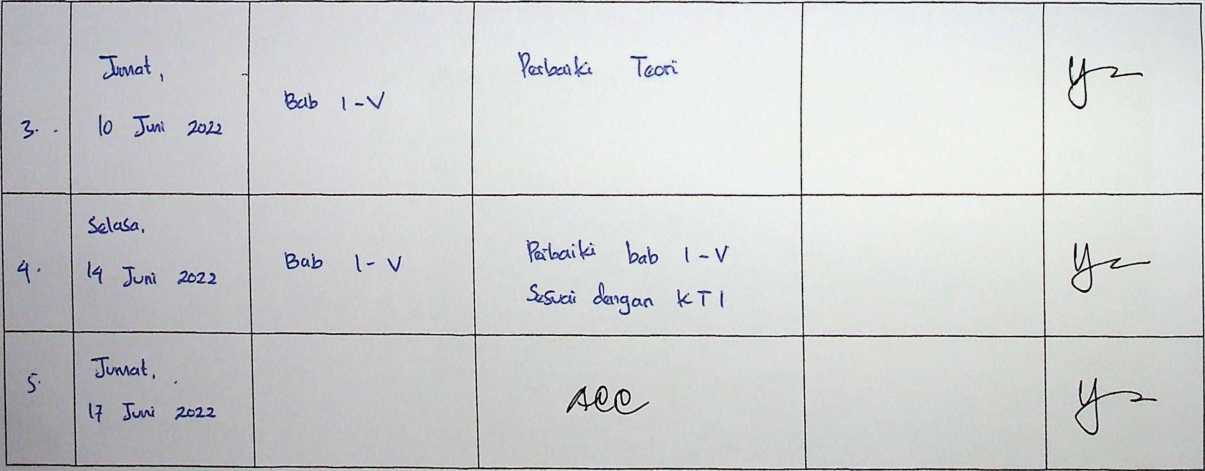 3.
Jumat,
10 Juni 2022
Bab I-V
Perbaiki Teori
4.
Selasa,
14 Juni 2022
Bab I-V
Perbaiki bab I-V
Sesuai dengan KTI
5.
Jumat,
17 Juni 2022
ACC